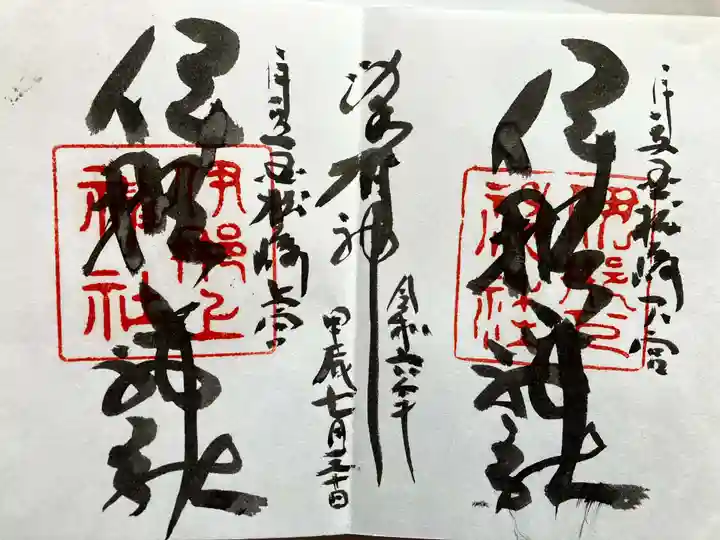 伊豆国松崎下宮
伊那下神社
伊那下
神社
有神
令和六年
甲辰七月三十日
伊豆国松崎上宮
伊那上神社
伊那上
神社